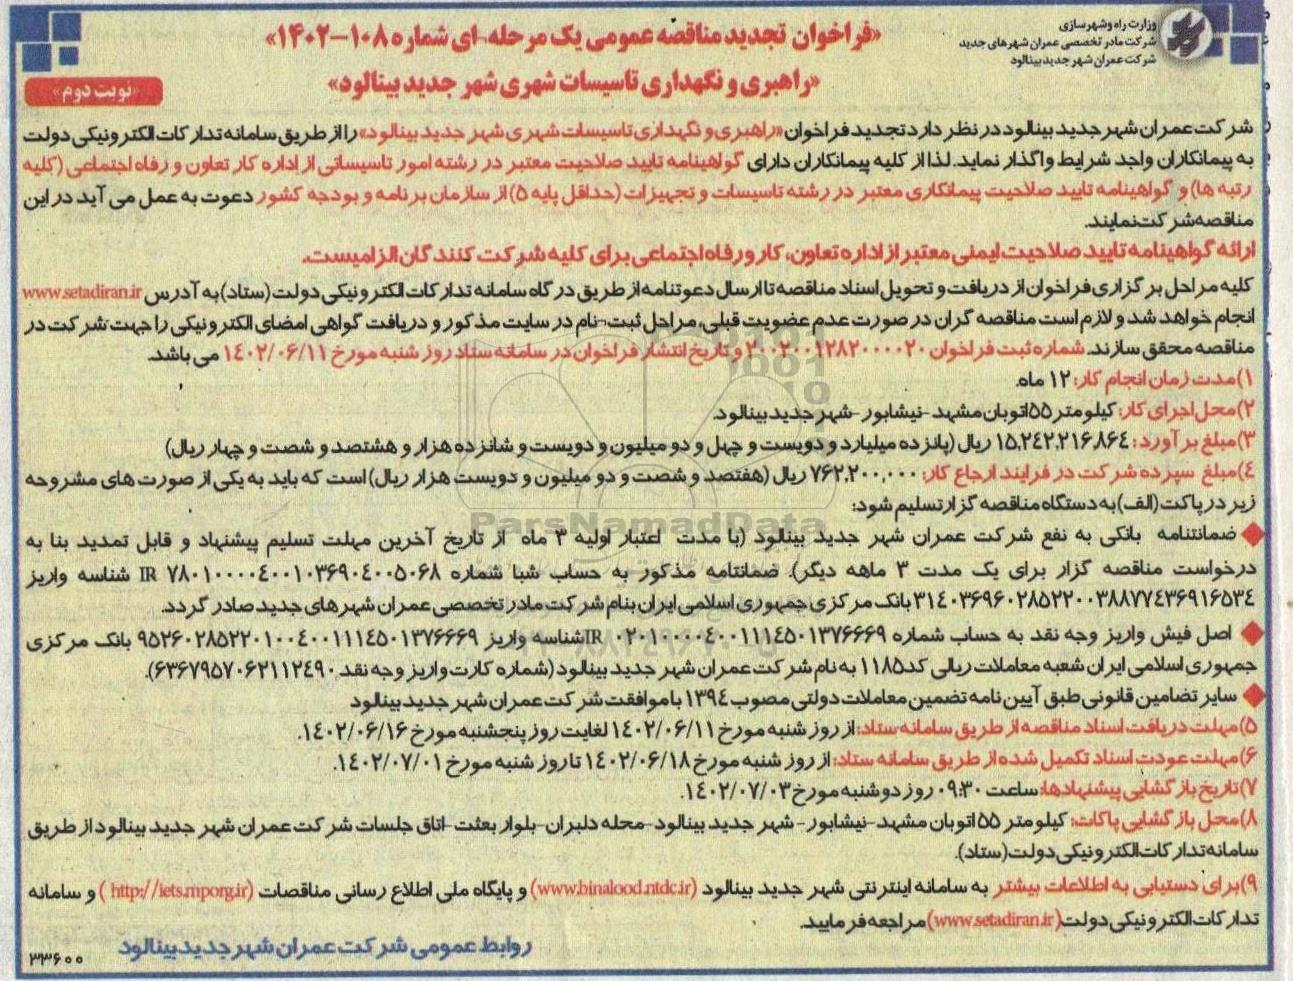 وزارت راه و شهرسازی
شرکت مادر تخصصی عمران شهرهای جدید
شرکت عمران شهر جدید بینالود
«فراخوان تجدید مناقصه عمومی یک مرحله-ای شماره ۱۰۸–۱۴۰۲»
«راهبری و نگهداری تاسیسات شهری شهر جدید بینالود»
«نوبت دوم»
شرکت عمران شهر جدید بینالود در نظر دارد تجدید فراخوان «راهبری و نگهداری تاسیسات شهری شهر جدید بینالود» را از طریق سامانه تدارکات الکترونیکی دولت
به پیمانکاران واجد شرایط واگذار نماید. لذا از کلیه پیمانکاران دارای گواهینامه تایید صلاحیت معتبر در رشته امور تاسیساتی از اداره کار تعاون و رفاه اجتماعی (کلیه
رتبه ها) و گواهینامه تایید صلاحیت پیمانکاری معتبر در رشته تاسیسات و تجهیزات (حداقل پایه ۵) از سازمان برنامه و بودجه کشور دعوت به عمل می آید در این
مناقصه شرکت نمایند.
ارائه گواهینامه تایید صلاحیت ایمنی معتبر از اداره تعاون، کار و رفاه اجتماعی برای کلیه شرکت کنندگان الزامیست.
کلیه مراحل برگزاری فراخوان از دریافت و تحویل اسناد مناقصه تا ارسال دعوتنامه از طریق درگاه سامانه تدارکات الکترونیکی دولت (ستاد) به آدرس www.setadiran.ir
انجام خواهد شد و لازم است مناقصه گران در صورت عدم عضویت قبلی، مراحل ثبت-نام در سایت مذکور و دریافت گواهی امضای الکترونیکی را جهت شرکت در
مناقصه محقق سازند. شماره ثبت فراخوان ۲۰۰۲۰۰۱۲۸۲۰۰۰۰۲۰ و تاریخ انتشار فراخوان در سامانه ستاد روز شنبه مورخ ۱۴۰۲/۰۶/۱۱ می باشد.
۱) مدت زمان انجام کار: ۱۲ ماه.
۲) محل اجرای کار: کیلومتر ۵۵ اتوبان مشهد -نیشابور -شهر جدید بینالود.
۳) مبلغ برآورد: ۱۵,۲۴۲,۲۱۶,۸۶۴ ریال (پانزده میلیارد و دویست و چهل و دو میلیون و دویست و شانزده هزار و هشتصد و شصت و چهار ریال)
۴) مبلغ سپرده شرکت در فرایند ارجاع کار: ۷۶۲,۲۰۰,۰۰۰ ریال (هفتصد و شصت و دو میلیون و دویست هزار ریال) است که باید به یکی از صورت های مشروحه
زیر در پاکت (الف) به دستگاه مناقصه گزار تسلیم شود:
ضمانتنامه بانکی به نفع شرکت عمران شهر جدید بینالود (با مدت اعتبار اولیه ۳ ماه از تاریخ آخرین مهلت تسلیم پیشنهاد و قابل تمدید بنا به
درخواست مناقصه گزار برای یک مدت ۳ ماهه دیگر). ضمانتنامه مذکور به حساب شبا شماره IR ۷۸۰۱۰۰۰۰۴۰۰۱۰۳۶۹۰۴۰۰۵۰۶۸ شناسه واریز
۳۱۴۰۳۶۹۶۰۲۸۵۲۲۰۰۳۸۸۷۷۴۳۶۹۱۶۵۳۴ بانک مرکزی جمهوری اسلامی ایران بنام شرکت مادر تخصصی عمران شهرهای جدید صادر گردد.
اصل فیش واریز وجه نقد به حساب شماره IR ۰۲۰۱۰۰۰۰۴۰۰۱۱۱۴۵۰۱۳۷۶۶۶۹ شناسه واریز ۹۵۲۶۰۲۸۵۲۲۰۱۰۰۴۰۰۱۱۱۴۵۰۱۳۷۶۶۶۹ بانک مرکزی
جمهوری اسلامی ایران شعبه معاملات ریالی کد ۱۱۸۵ به نام شرکت عمران شهر جدید بینالود (شماره کارت واریز وجه نقد ۶۳۶۷۹۵۷۰۶۲۱۱۲۴۹۰).
سایر تضامین قانونی طبق آیین نامه تضمین معاملات دولتی مصوب ۱۳۹۴ با موافقت شرکت عمران شهر جدید بینالود
۵) مهلت دریافت اسناد مناقصه از طریق سامانه ستاد: از روز شنبه مورخ ۱۴۰۲/۰۶/۱۱ لغایت روز پنجشنبه مورخ ۱۴۰۲/۰۶/۱۶.
۶) مهلت عودت اسناد تکمیل شده از طریق سامانه ستاد: از روز شنبه مورخ ۱۴۰۲/۰۶/۱۸ تا روز شنبه مورخ ۱۴۰۲/۰۷/۰۱.
۷) تاریخ بازگشایی پیشنهادها: ساعت ۰۹:۳۰ روز دوشنبه مورخ ۱۴۰۲/۰۷/۰۳.
۸) محل بازگشایی پاکات: کیلومتر ۵۵ اتوبان مشهد -نیشابور- شهر جدید بینالود-محله دلبران-بلوار بعثت-اتاق جلسات شرکت عمران شهر جدید بینالود از طریق
سامانه تدارکات الکترونیکی دولت (ستاد).
۹) برای دستیابی به اطلاعات بیشتر به سامانه اینترنتی شهر جدید بینالود (www.binalood.ntdc.ir) و پایگاه ملی اطلاع رسانی مناقصات (http://iets.mporg.ir) و سامانه
تدارکات الکترونیکی دولت (www.setadiran.ir) مراجعه فرمایید.
روابط عمومی شرکت عمران شهر جدید بینالود
۳۳۶۰۰
ParsNamadData